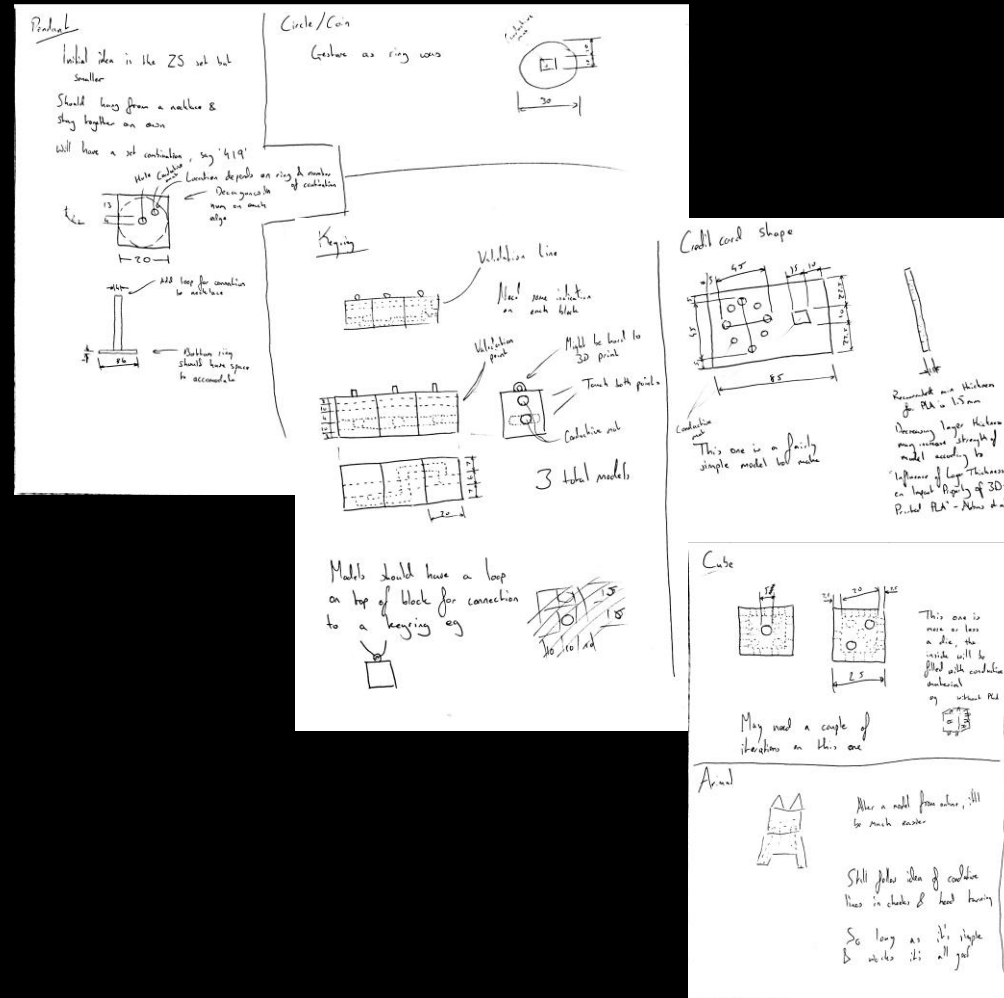 Pendant
Initial idea is the ZS set but
smaller
Should hang from a necklace &
stay together on own
Will have a set combination, say '419'
Hole Conductive
Location depends on ring & number
of combination
num on each
edge
13
20
Add loop for connection
to necklace
Bottom ring
should have space
to accomodate
Circle/Coin
Gesture as ring was
Conductive
30
Keyring
Validation Line
Need some indication
on each block
Validation
point
Might be hard to
3D print
Touch both points
Conductive mat
3 total models
20
Models should have a loop
on top of block for connection
to a keyring eg
Credit card shape
45
15
10
55
85
Conductive
mat
This one is a fairly
simple model to make
Recommended min thickness
for PLA is 1.5mm
Decreasing layer thickness
may increase strength of
model according to
"Influence of Layer Thickness
on Impact Property of 3D-
Printed PLA" -
Cube
20
25
This one is
more or less
a die, the
inside will be
filled with conductive
material
eg without PLA
May need a couple of
iterations on this one
Animal
Alter a model from online, it'll
be much easier
Still follow idea of conductive
lines in cheeks & head turning
So long as it's simple
& works it's all good